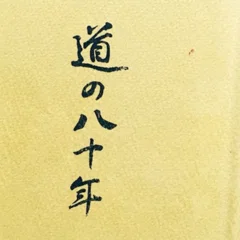 道の八十年